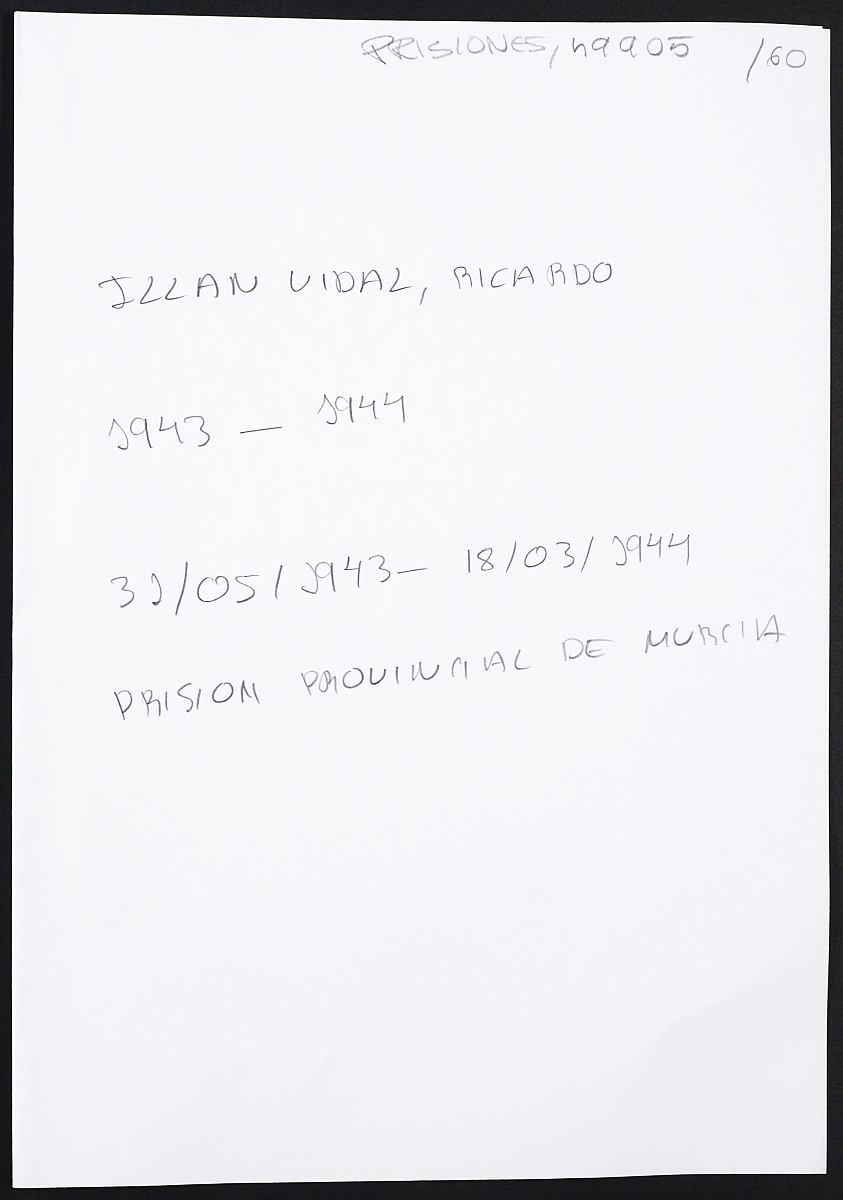 PRISIONES, 49905 /60
ILLAN VIDAL, RICARDO
1943 — 1944
31/05/1943 — 18/03/1944
PRISION PROVINCIAL DE MURCIA